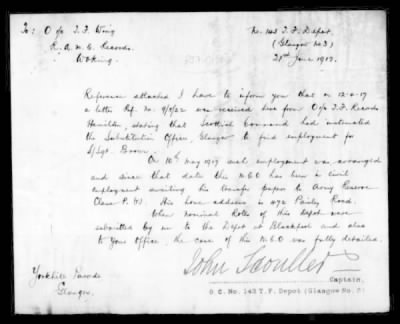 To: O/c T.F. Wing
R.A.M.C. Records.
Woking.
No. 143 T.F. Depot.
(Glasgow No 3)
21st June 1917.
Reference attached I have to inform you that on 12-4-17
a letter Ref. No. 9/8/22 was received here from O/c T.F. Records
Hamilton, stating that Scottish Command had instructed
the Substitution Officer, Glasgow to find employment for
S/Sgt Brown.
On 10th May 1917 such employment was arranged
and since that date this N.C.O has been in civil
employment awaiting his transfer papers to Army Reserve
Class P. W. His home address is 472 Paisley Road.
When nominal Rolls of this Depot were
submitted by me to the Depot at Blackpool and also
to Your Office, the case of this N.C.O was fully detailed.
John Scouller
Captain.
O C. No. 143 T.F. Depot (Glasgow No. 3)
Yorkhill Parade
Glasgow.